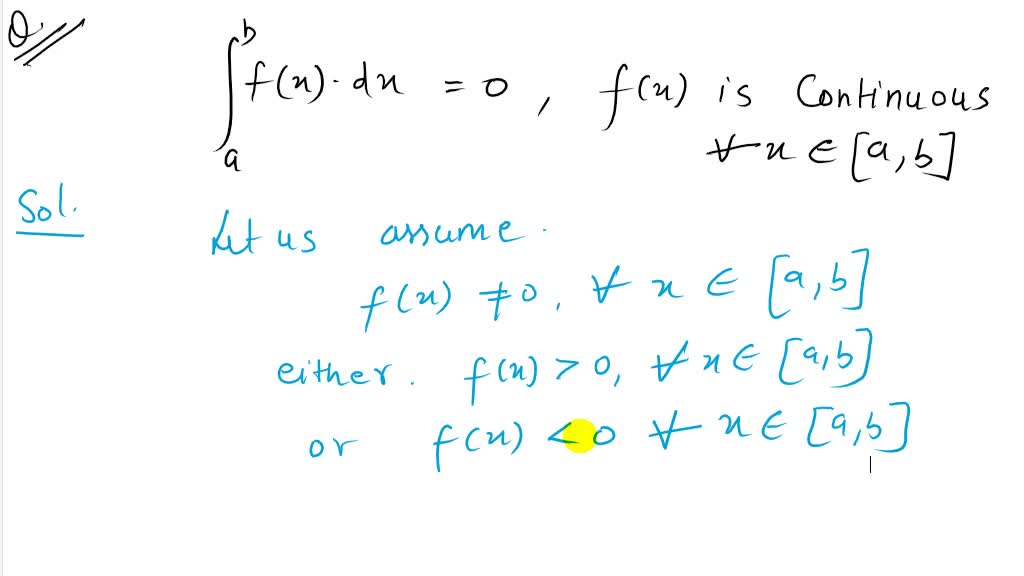 Q.
∫_a^b f(x)·dx = 0, f(x) is Continuous
∀ x ∈ [a,b]
Sol.
Let us assume.
f(x) ≠ 0, ∀ x ∈ [a,b]
either. f(x) > 0, ∀ x ∈ [a,b]
or f(x) < 0 ∀ x ∈ [a,b]